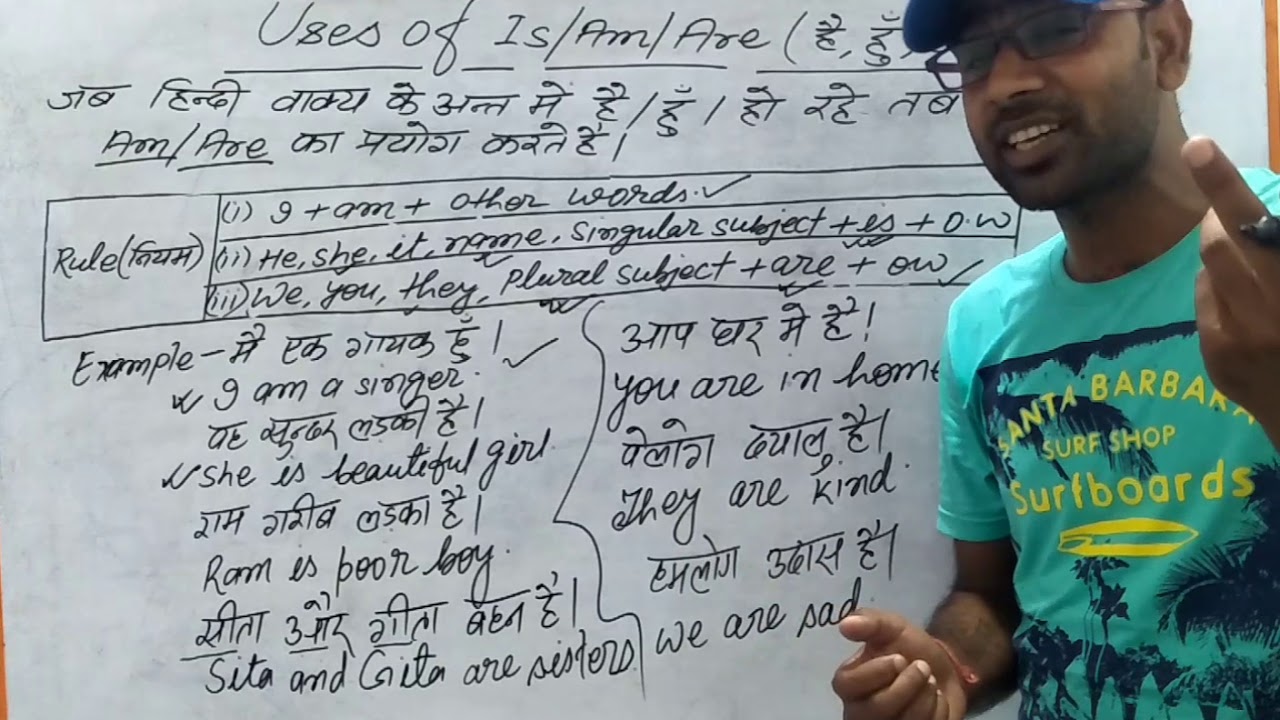 Uses of Is/Am/Are (है, हूँ,
जब हिन्दी वाक्य के अन्त मे है/हूँ/हो रहे तब
Am/Are का प्रयोग करते है।
Rule(नियम)
(i) I + am + other words.
(ii) He, she, it, name, singular subject + is + O.W
(iii) We, you, they, Plural subject + are + ow
Example - मै एक गायक हूँ।
I am a singer.
वह सुन्दर लड़की है।
She is beautiful girl.
राम गरीब लड़का है।
Ram is poor boy.
सीता और गीता बहन है।
Sita and Gita are sisters
आप घर मे है।
you are in home
वेलोग दयालु है।
They are kind.
हमलोग उदास है।
we are sad.
SANTA BARBARA
SURF SHOP
Surfboards